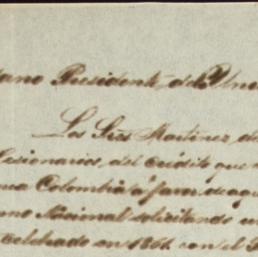 dano Presidente del
Los Sres Martinez, d
Cesionarios, del crédito que
Colombia á favor de
no Nacional solicitando un
celebrado en 1861 con el